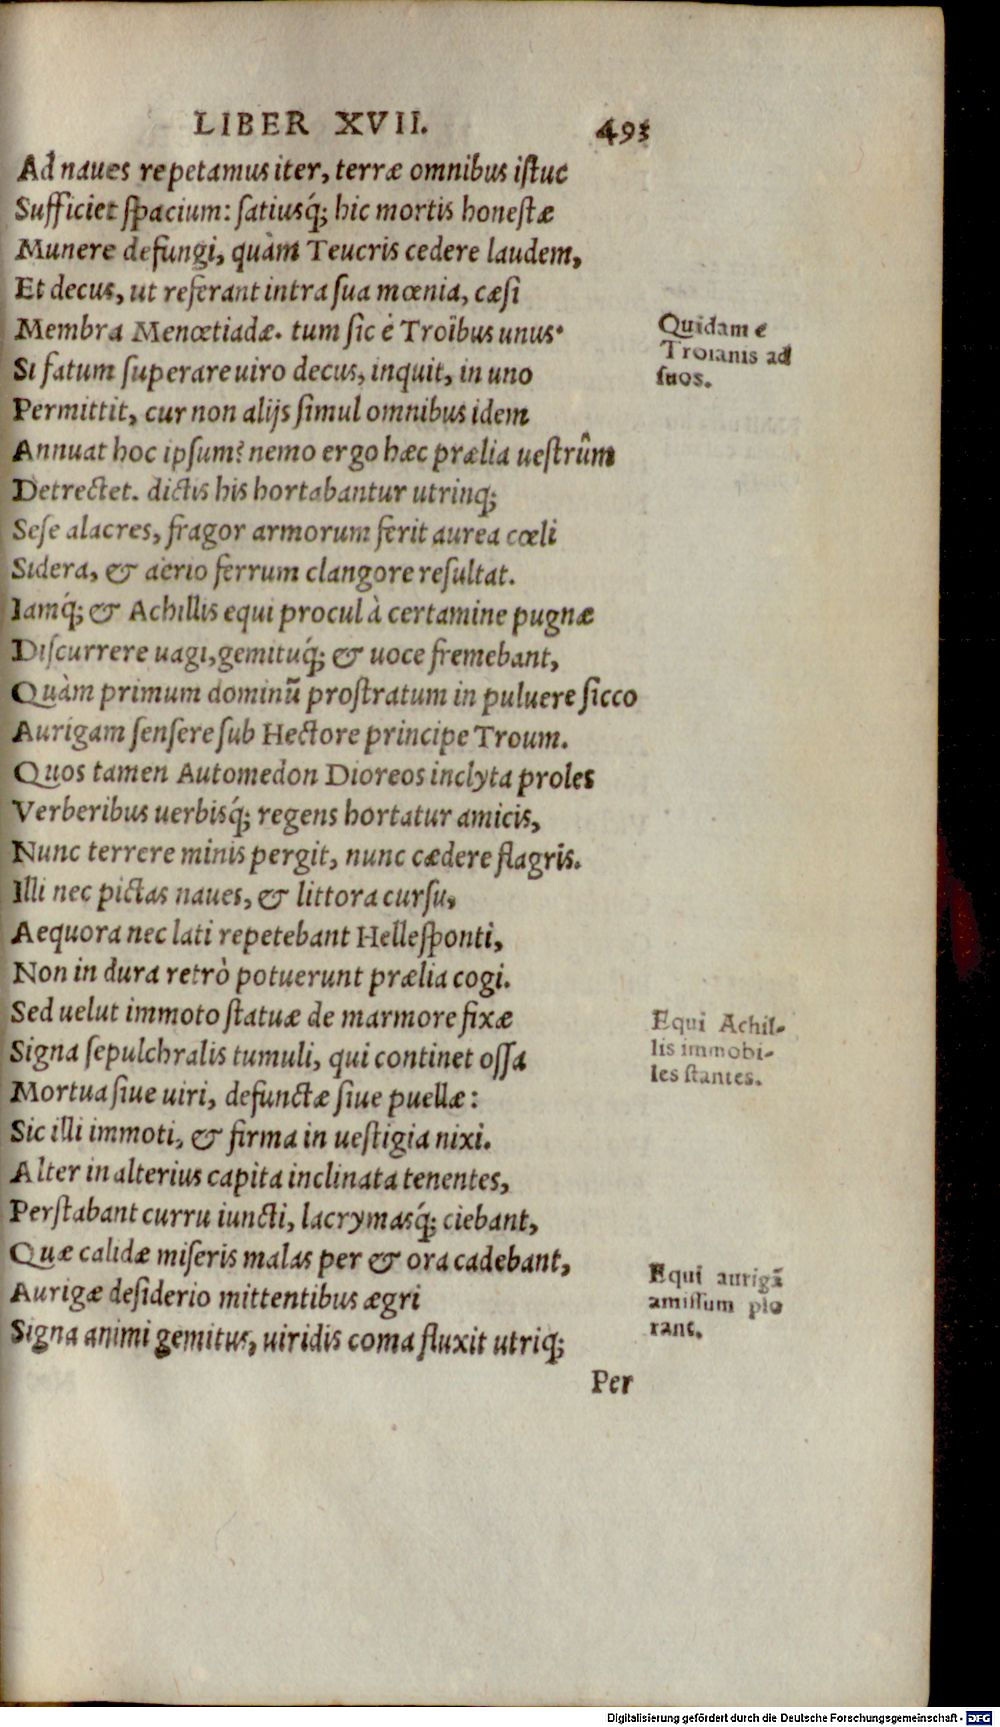 LIBER XVII. 493
Ad naues repetamus iter, terræ omnibus istuc
Sufficiet spacium: satiusq́; hic mortis honestæ
Munere defungi, quàm Teucris cedere laudem,
Et decus, ut referant intra sua mœnia, cæsi
Membra Menœtiadæ. tum sic è Troïbus unus·
Quidam e
Troianis ad
suos.
Si fatum superare uiro decus, inquit, in uno
Permittit, cur non alijs simul omnibus idem
Annuat hoc ipsum? nemo ergo hæc prælia uestrûm
Detrectet. dictis his hortabantur utrinq;
Sese alacres, fragor armorum ferit aurea cœli
Sidera, & aërio ferrum clangore resultat.
Iamq́; & Achillis equi procul à certamine pugnæ
Discurrere uagi, gemituq́; & uoce fremebant,
Quàm primum dominũ prostratum in puluere sicco
Aurigam sensere sub Hectore principe Troum.
Quos tamen Automedon Dioreos inclyta proles
Verberibus uerbisq́; regens hortatur amicis,
Nunc terrere minis pergit, nunc cædere flagris.
Illi nec pictas naues, & littora cursu,
Aequora nec lati repetebant Hellesponti,
Non in dura retrò potuerunt prælia cogi.
Sed uelut immoto statuæ de marmore fixæ
Signa sepulchralis tumuli, qui continet ossa
Mortua siue uiri, defunctæ siue puellæ:
Equi Achil-
lis immobi-
les stantes.
Sic illi immoti, & firma in uestigia nixi.
Alter in alterius capita inclinata tenentes,
Perstabant curru iuncti, lacrymasq́; ciebant,
Quæ calidæ miseris malas per & ora cadebant,
Aurigæ desiderio mittentibus ægri
Signa animi gemitus, uiridis coma fluxit utriq;
Equi aurigã
amissum plo
rant.
Per
Digitalisierung gefördert durch die Deutsche Forschungsgemeinschaft - DFG